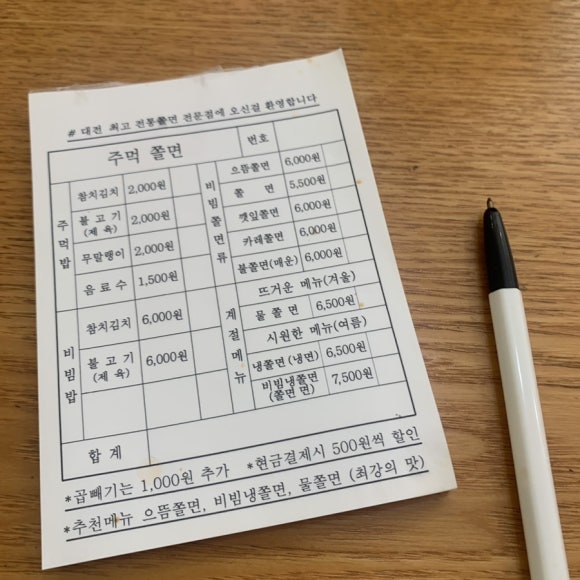 # 대전 최고 전통쫄면 전문점에 오신걸 환영합니다
주먹 쫄면
번호
주먹밥
참치김치 2,000원
불고기 (제육) 2,000원
무말랭이 2,000원
음료수 1,500원
비빔밥
참치김치 6,000원
불고기 (제육) 6,000원
비빔쫄면류
으뜸쫄면 6,000원
쫄면 5,500원
깻잎쫄면 6,000원
카레쫄면 6,000원
불쫄면(매운) 6,000원
계절메뉴
뜨거운 메뉴(겨울)
물쫄면 6,500원
시원한 메뉴(여름)
냉쫄면(냉면) 6,500원
비빔냉쫄면 (쫄면 면) 7,500원
합계
*곱빼기는 1,000원 추가 *현금결제시 500원씩 할인
*추천메뉴 으뜸쫄면, 비빔냉쫄면, 물쫄면 (최강의 맛)